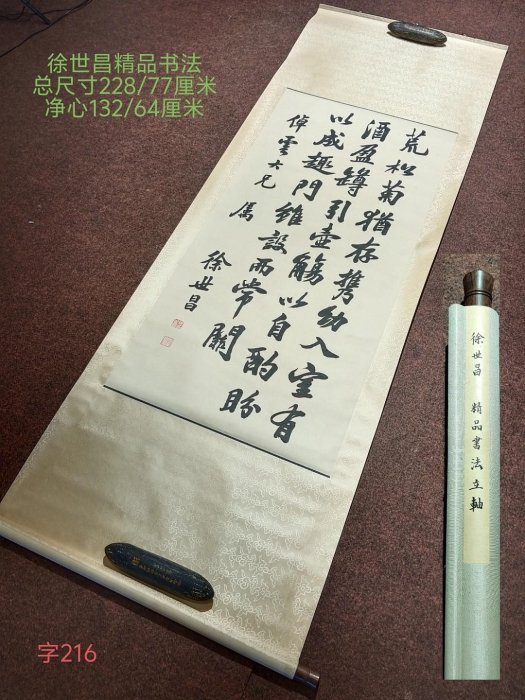 徐世昌精品书法
总尺寸228/77厘米
净心132/64厘米
荒松菊猶存携幼入室有
酒盈罇引壺觴以自酌盼
以成趣門維設而常關
倬雲大兄 属
徐世昌
徐世昌 精品書法立軸
字216